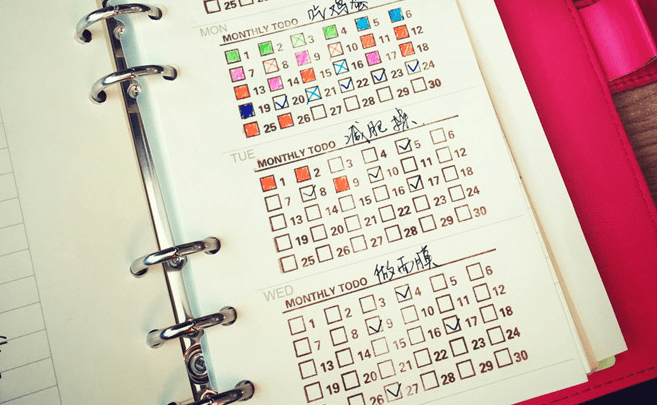 25
吃鸡蛋
MON
MONTHLY TODO
1 2 3 4 5 6
7 8 9 10 11 12
13 14 15 16 17 18
19 20 21 22 23 24
25 26 27 28 29 30
减肥操
TUE
MONTHLY TODO
1 2 3 4 5 6
7 8 9 10 11 12
13 14 15 16 17 18
19 20 21 22 23 24
25 26 27 28 29 30
做面膜
WED
MONTHLY TODO
1 2 3 4 5 6
7 8 9 10 11 12
13 14 15 16 17 18
19 20 21 22 23 24
26 27 28 29 30